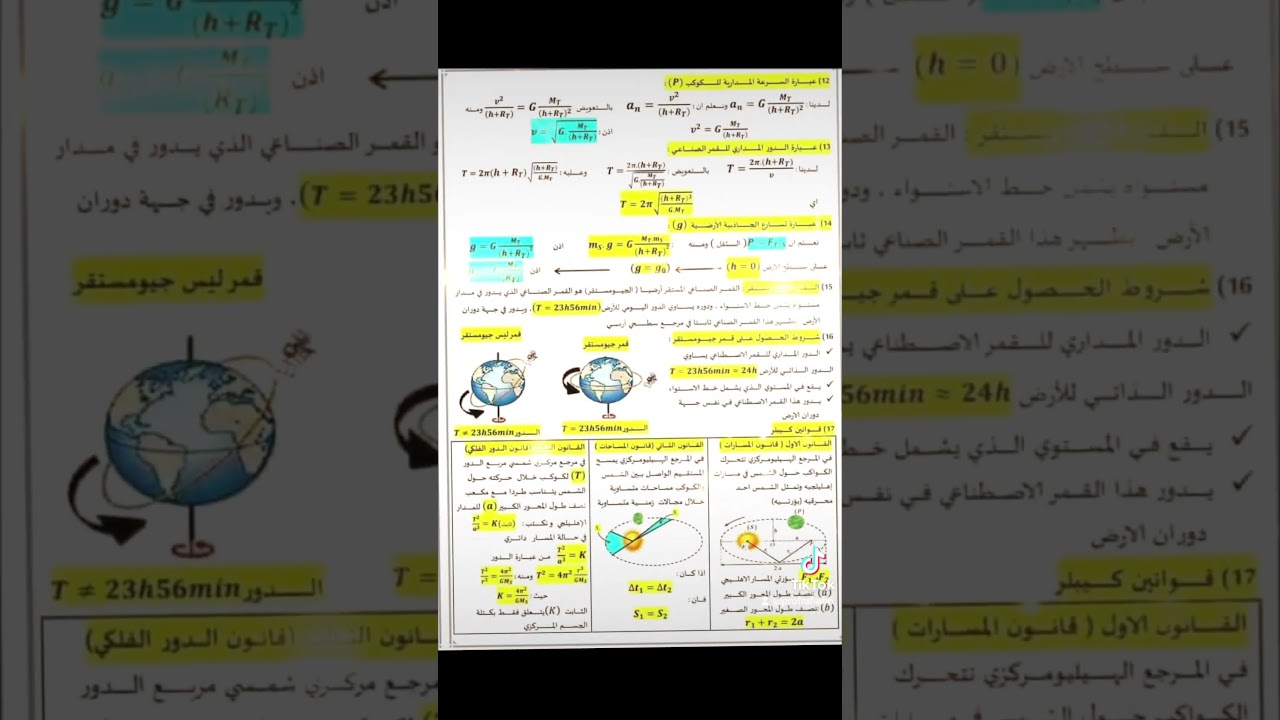 12) عبارة السرعة المدارية للكوكب (P) :
لدينا: aₙ = G M_T/(h+R_T)² ونعلم ان: aₙ = v²/(h+R_T) بالتعويض v²/(h+R_T) = G M_T/(h+R_T)² ومنه
v² = G M_T/(h+R_T) اذن: v = √(G M_T/(h+R_T))
13) عبارة الدور المداري للقمر الصناعي :
لدينا: T = 2π.(h+R_T)/v بالتعويض: T = 2π.(h+R_T)/√(G M_T/(h+R_T)) وعليه: T = 2π(h + R_T)√((h+R_T)/G.M_T)
اي T = 2π√((h+R_T)³/G.M_T)
14) عبارة تسارع الجاذبية الأرضية (g) :
نعلم ان ( الثقل ) ومنه : m_S. g = G M_T.m_S/(h+R_T)² اذن g = G M_T/(h+R_T)²
على سطح الارض (h = 0) (g = g₀) اذن
15) القمر الصناعي المستقر أرضيا ( الجيومستقر) هو القمر الصناعي الذي يدور في مدار
مستواه يشمل خط الاستواء ، ودوره يساوي الدور اليومي للأرض (T = 23h56min)، ويدور في جهة دوران
الأرض يظهر هذا القمر الصناعي ثابتا في مرجع سطحي أرضي
16) شروط الحصول على قمر جيومستقر :
✓ الدور المداري للقمر الاصطناعي يساوي
الدور الذاتي للأرض T = 23h56min ≈ 24h
✓ يقع في المستوي الذي يشمل خط الاستواء
✓ يدور هذا القمر الاصطناعي في نفس جهة
دوران الارض
قمر جيومستقر
الدور T = 23h56min
قمر ليس جيومستقر
الدور T ≠ 23h56min
17) قوانين كيبلر
القانون الاول ( قانون المسارات )
في المرجع الهيليومركزي تتحرك
الكواكب حول الشمس في مسارات
إهليلجيه وتمثل الشمس احد
محرقيه (بؤرتيه)
(P)
(S)
b
2a
بؤرتي المسار الاهليجي
(a): نصف طول المحور الكبير
(b): نصف طول المحور الصغير
r₁ + r₂ = 2a
القانون الثاني (قانون المساحات )
في المرجع الهيليومركزي يمسح
المستقيم الواصل بين الشمس
والكوكب مساحات متساوية
خلال مجالات زمنية متساوية
اذا كان :
Δt₁ = Δt₂
فان :
S₁ = S₂
القانون (قانون الدور الفلكي)
في مرجع مركزي شمسي مربع الدور
(T) لكوكب خلال حركته حول
الشمس يتناسب طردا مع مكعب
نصف طول المحور الكبير (a) للمدار
الإهليلجي ونكتب : T²/a³ = K (ثابت)
في حالة المسار دائري
T²/a³ = K من عبارة الدور
T² = 4π² r³/GM_S ومنه: T²/r³ = 4π²/GM_S
حيث: K = 4π²/GM_S
الثابت (K) يتعلق فقط بكتلة
الجسم المركزي
TikTok